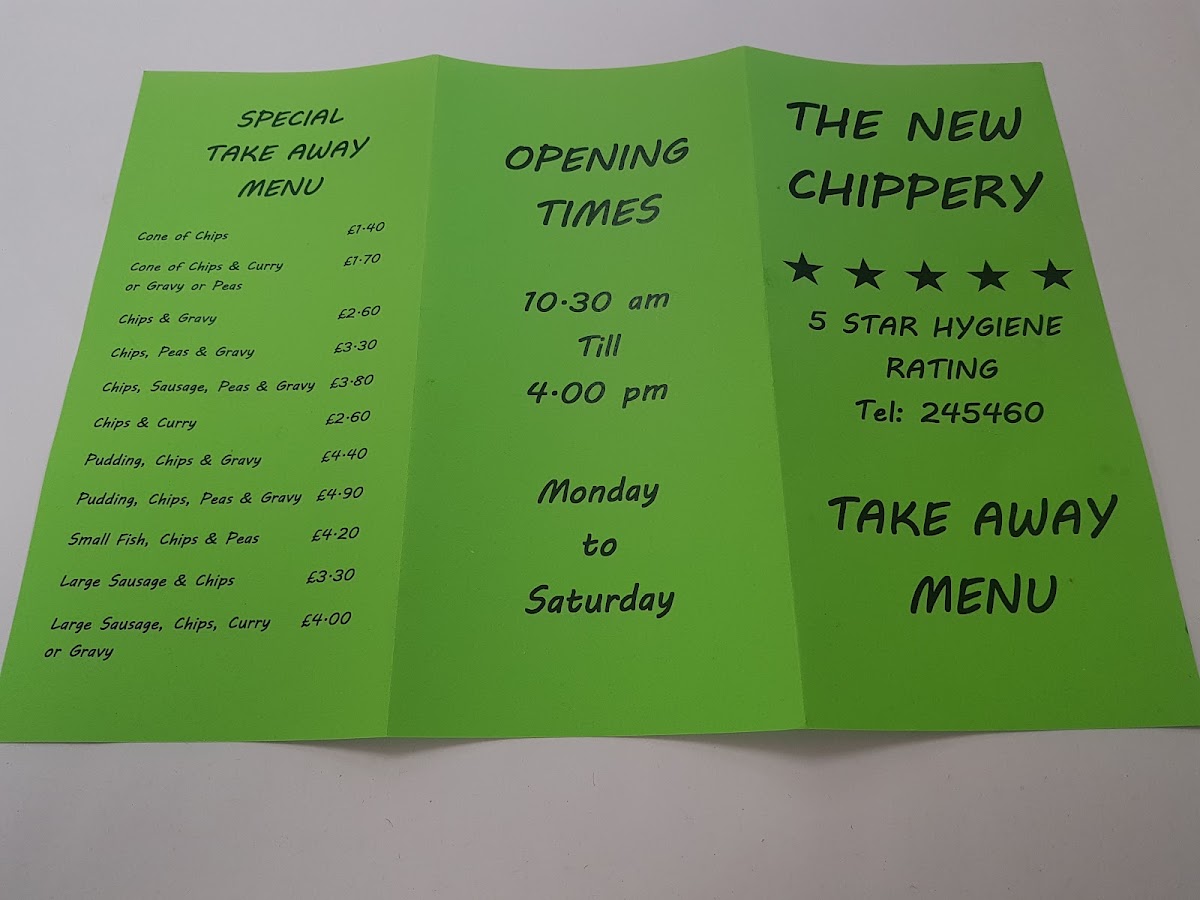 SPECIAL
TAKE AWAY
MENU
Cone of Chips £1.40
Cone of Chips & Curry £1.70
or Gravy or Peas
Chips & Gravy £2.60
Chips, Peas & Gravy £3.30
Chips, Sausage, Peas & Gravy £3.80
Chips & Curry £2.60
Pudding, Chips & Gravy £4.40
Pudding, Chips, Peas & Gravy £4.90
Small Fish, Chips & Peas £4.20
Large Sausage & Chips £3.30
Large Sausage, Chips, Curry £4.00
or Gravy
OPENING
TIMES
10.30 am
Till
4.00 pm
Monday
to
Saturday
THE NEW
CHIPPERY
★ ★ ★ ★ ★
5 STAR HYGIENE
RATING
Tel: 245460
TAKE AWAY
MENU